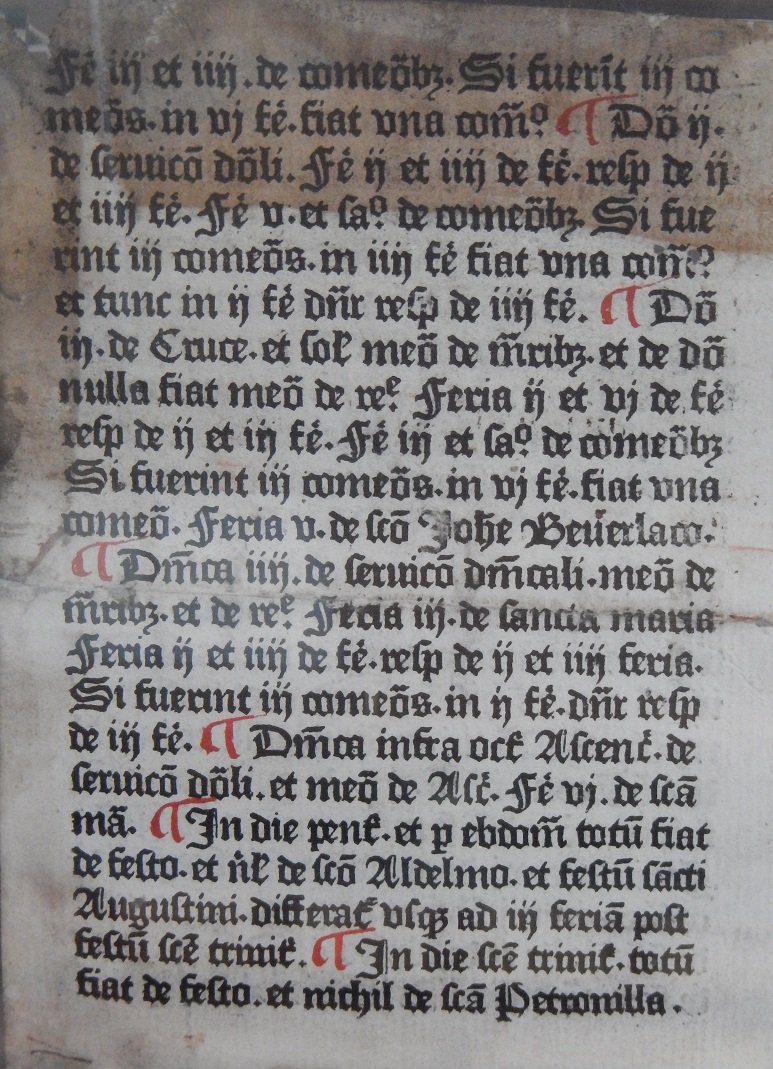 Fē iij et iiij. de comeōbꝫ. Si fuerīt iij co
meōs. in vj fē. fiat vna com̄o ¶ Dō ij.
de seruicō dōli. Fē ij et iiij de fē. resp de ij
et iiij fē. Fē v. et sao de comeōbꝫ Si fue
rint iij comeōs. in iiij fē fiat vna com̄o
et tunc in ij fē dn̄r resp de iiij fē. ¶ Dō
iij. de Cruce. et sol̄ meō de m̄ribꝫ. et de dō
nulla fiat meō de ree. Feria ij et vj de fē
resp de ij et iij fē. Fē iij et sao de comeōbꝫ
Si fuerint iij comeōs. in vj fē. fiat vna
comeō. Feria v. de scō Johe Beuerlaco.
¶ Dm̄ca iiij. de seruicō dm̄cali. meō de
m̄ribꝫ. et de ree. Feria iij. de sancta maria
Feria ij et iiij de fē. resp de ij et iiij feria.
Si fuerint iij comeōs. in ij fē. dn̄r resp
de iij fē. ¶ Dm̄ca infra oct̄ Ascenc̄. de
seruicō dōli. et meō de Asc̄. Fē vj. de scā
mā. ¶ In die pent̄. et p ebdom̄ totū fiat
de festo. et nl̄ de scō Aldelmo. et festū sācti
Augustini. differat̄ vsqꝫ ad iij feriā post
festū scē trinit̄. ¶ In die scē trinit̄. totū
fiat de festo. et nichil de scā Petronilla.